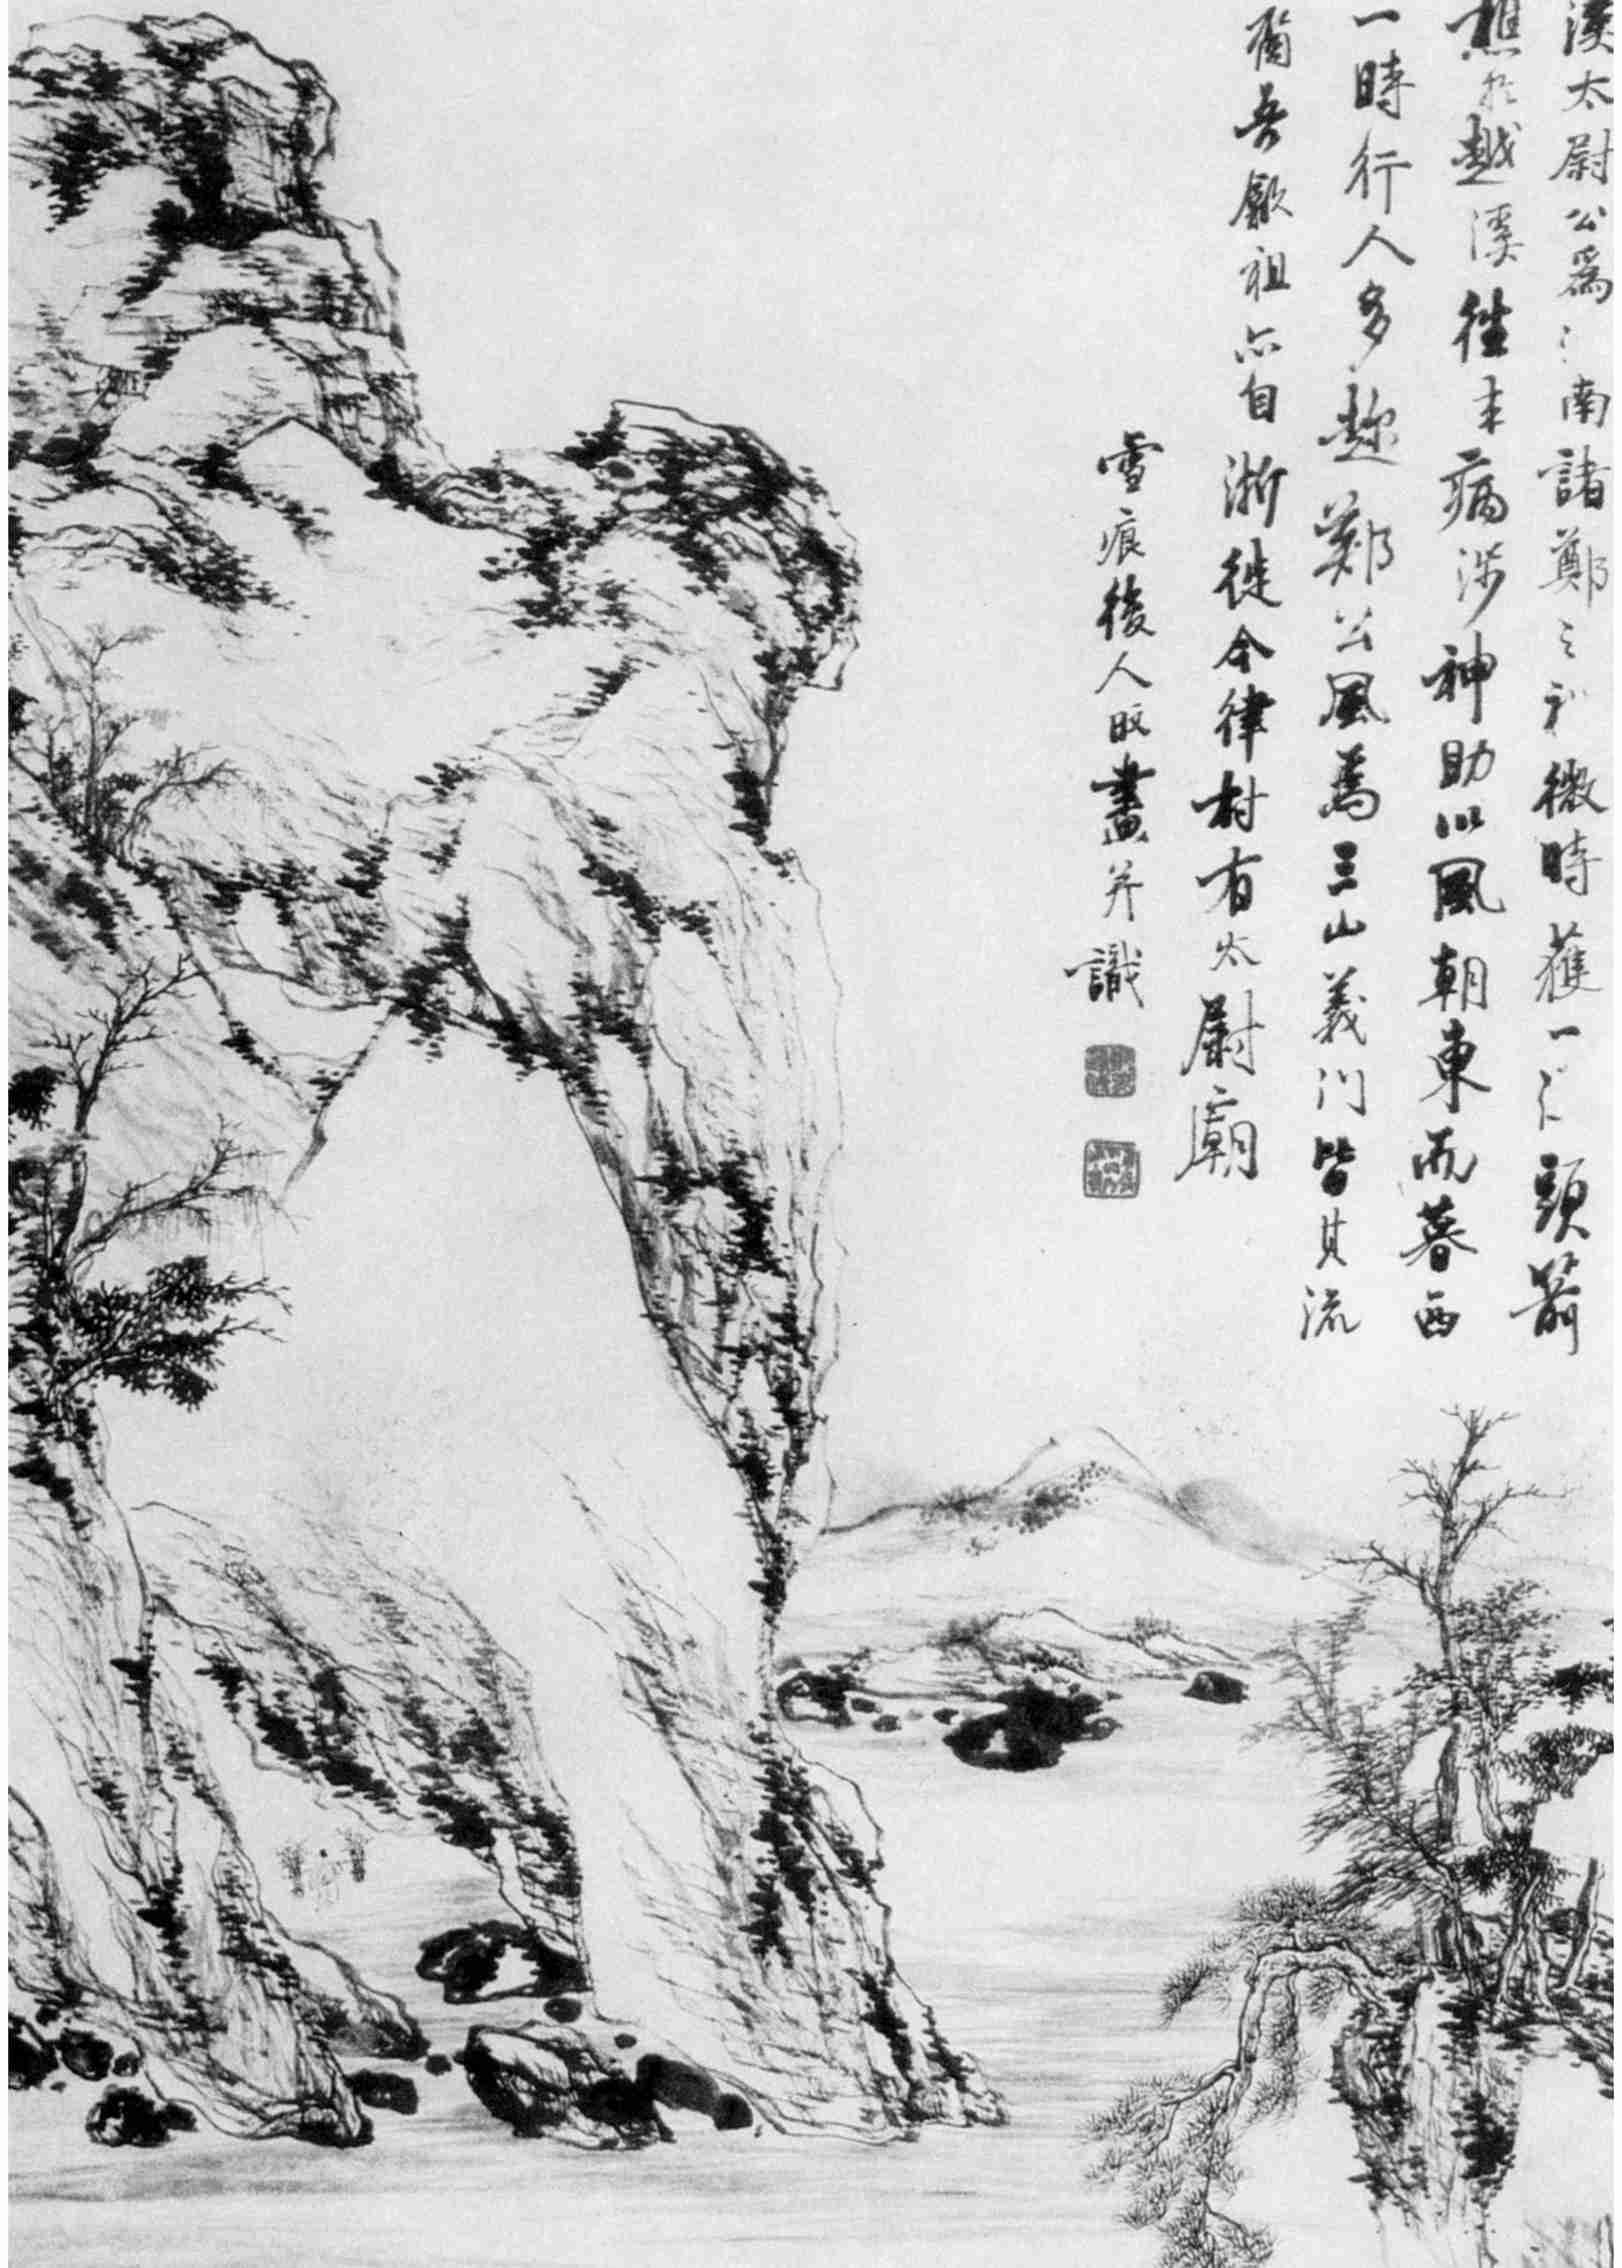 漢太尉公為江南諸鄭之祖微時獲一頭箭
樵於越溪往來病涉神助以風朝東而暮西
一時行人多趂鄭公風焉三山義門皆其流
裔吾歙祖亦自浙徙今律村有太尉廟
雪痕後人旼畫并識